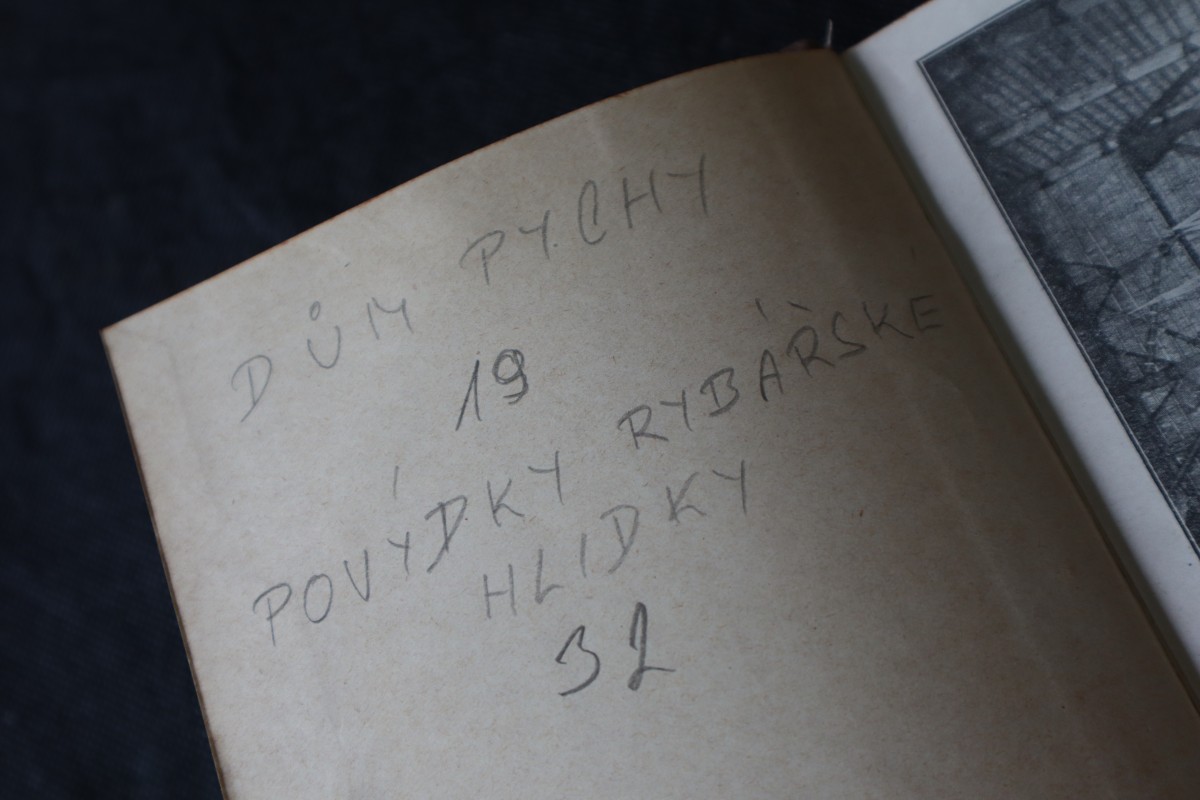 DŮM PYCHY
19
POVÝDKY RYBÁŘSKÉ
HLIDKY
32